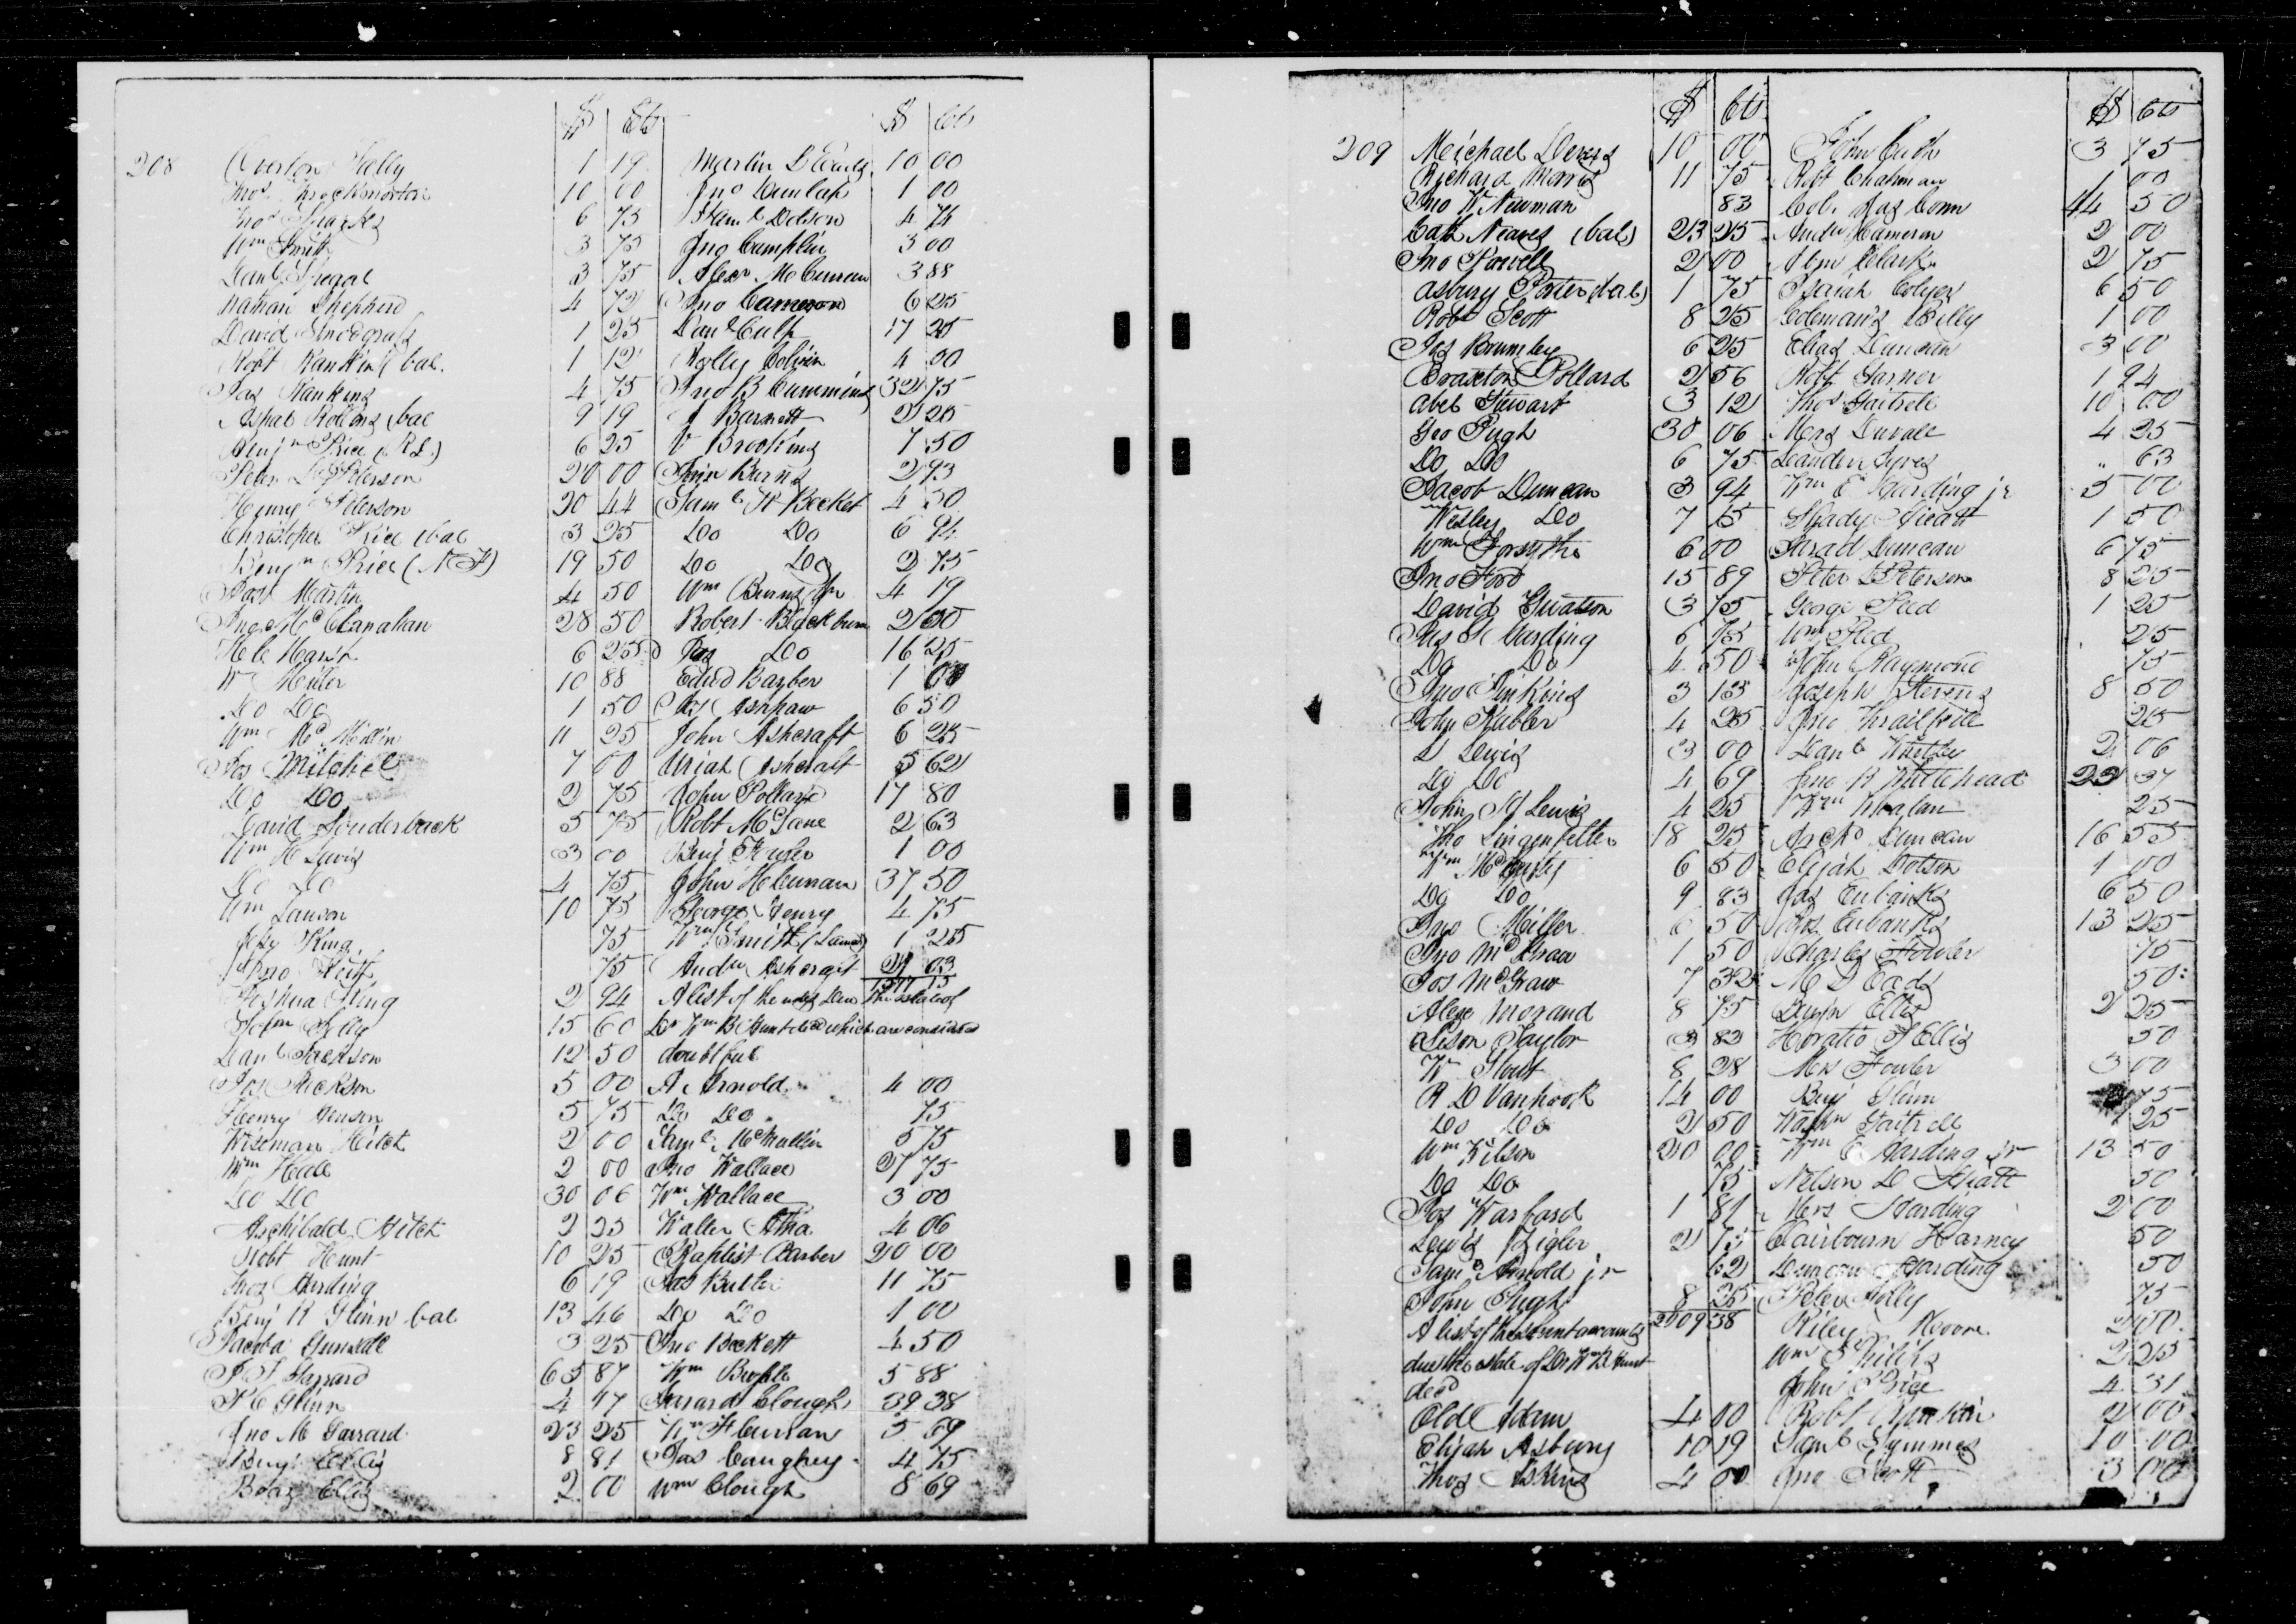 $ Cts $ Cts
208 Curton Tally 1 19
Thos Throckmorton 10 00
Thos Sparks 6 75
Wm Smith 3 75
Danl Spegal 3 75
Nathan Shepherd 4 72
David Snodgrass 1 25
Robt Rankin bal. 1 12
Jas Rankins 4 75
Ashal Rollins bal 9 19
Benjn Price (R L) 6 25
Peter L Peterson 20 00
Henry Peterson 20 44
Christopher Price bal 3 25
Benjn Price (N F) 19 50
Jas Martin 4 50
Jno McClanahan 28 50
H C Marsh 6 25
W Miller 10 88
Do Do 1 50
Wm McMillin 11 25
Jos Mitchel 7 00
Do Do 2 75
David Louderback 5 75
Wm H Lewis 3 00
Do Do 4 75
Wm Lanson 10 75
Jefy King 75
Jno Keith 75
Joshua King 2 94
John Jelly 15 60
Danl Jackson 12 50
Jos Rickson 5 00
Henry Henson 5 75
Wiseman Hitch 2 00
Wm Hall 2 00
Do Do 30 06
Archibald Hitch 2 25
Robt Hunt 10 25
Thos Harding 6 19
Benj R Glinn bal 13 46
Jacob Gunsale 3 25
J T Garrard 65 87
H C Glinn 4 47
Jno M Garrard 23 25
Benj Ellis 8 81
Boaz Ellis 2 00
Martin D Eads 10 00
Jno Dunlap 1 00
Saml Dotson 4 74
Jno Camplin 3 00
Alexr McCurrum 3 88
Jno Cameron 6 25
Danl Culp 17 25
Holly Colvin 4 00
Jno B Cummins 32 75
J Barnett 2 25
V Brooking 7 50
Jno Burns 2 93
Saml W Becket 4 50
Do Do 6 94
Do Do 2 75
Wm Burns Jr 4 19
Robert Blackburn 2 50
Jas Do 16 25
Edwd Barber 1 00
Jas Ashpaw 6 50
John Ashcraft 6 25
Uriah Ashcraft 5 62
John Pollard 17 80
Robt McLane 2 63
Benj Kugler 1 00
John H Leuman 37 50
George Henry 4 75
Wm Smith (Lame) 1 25
Andw Ashcraft 21 03
1377 15
A list of the notes Due the estate of
Dr Wm B Hunt decd which are considered
doubtful
A Arnold 4 00
Do Do 75
Saml McMullin 5 75
Jno Wallace 27 75
Wm Wallace 3 00
Walter Atha 4 06
Baptist Barber 20 00
Jas Butler 11 75
Do Do 1 00
Jno Beckett 4 50
Wm Brophle 5 88
Garrard Clough 39 38
Wm H Clurran 5 69
Jas Caughey 4 75
Wm Clough 8 69
$ Cts $ Cts
209 Meichael Devers 10 00
Richard Morris 11 75
Jno W Newman 83
Cath Neaves (bal) 23 25
Jno Powell 2 00
Asbury Porter (bal) 1 75
Robt Scott 8 25
Jas Brumley 6 25
Braxton Pollard 2 56
Abel Stewart 3 12
Geo Pugh 30 06
Do Do 6 75
Jacob Duncan 3 94
Wesley Do 7 15
Wm Forsythe 6 00
Jno Ford 15 89
David Gwatson 3 75
Jas H Harding 6 75
Do Do 4 50
Jno Jinkins 3 13
John Kubler 4 25
L Lewis 3 00
Do Do 4 69
John H Lewis 4 25
Tho Lingenfelter 18 25
Wm McCarty 6 50
Do Do 9 83
Jno Miller 6 50
Jno McGraw 1 50
Jos McGraw 7 32
Alexr Morand 8 75
Alison Taylor 3 83
W Stout 8 28
A D Vanhook 14 00
Do Do 2 50
Wm Wilson 20 00
Do Do 75
Jos Warford 1 81
Lewis Zigler 2 75
Saml Arnold jr 62
John Pugh 8 25
2009 38
A list of the present accounts
due the estate of Dr Wm B Hunt
decd
Old Adam 4 00
Elijah Asbury 10 19
Thos Askins 4 00
John Culp 3 75
Robt Chapman 1 00
Col. Jas Conn 44 50
Andw Cameron 2 00
Abm Clark 2 75
Isaiah Colyer 6 50
Colemans Billy 1 00
Elias Duncan 3 00
Robt Garner 1 94
Thos Gaitrell 10 00
Mers Duvall 4 25
Leander Syres " 63
Wm E Harding jr 5 00
Shady Hieatt 1 50
Strad Duncan 6 75
Peter L Peterson 8 25
George Reed 1 25
Wm Reed 25
John Raymond 75
Joseph Stevens 8 50
Jno Thrailkile 25
Danl Whitley 2 06
Jno R Whitehead 22 37
Wm Whalan 25
Jack Duncan 16 55
Elijah Dotson 1 00
Jas Eubanks 6 50
Jos Eubanks 13 25
Charles Fowler 75
M D Eads 50
Benjn Ellis 2 25
Horatio J Ellis 50
Mrs Fowler 3 00
Benj Glinn 75
Washn Gaitrell 1 25
Wm E Harding jr 13 50
Nelson D Hiatt 50
Mrs Harding 2 00
Clairbourn Harney 50
Duncan Harding 50
Peter Jolly 75
Riley Moore 2 00
Wm Philips 2 25
John Price 4 31
Robt Rankin 2 00
Saml Symmes 10 00
Jno Scott 3 00